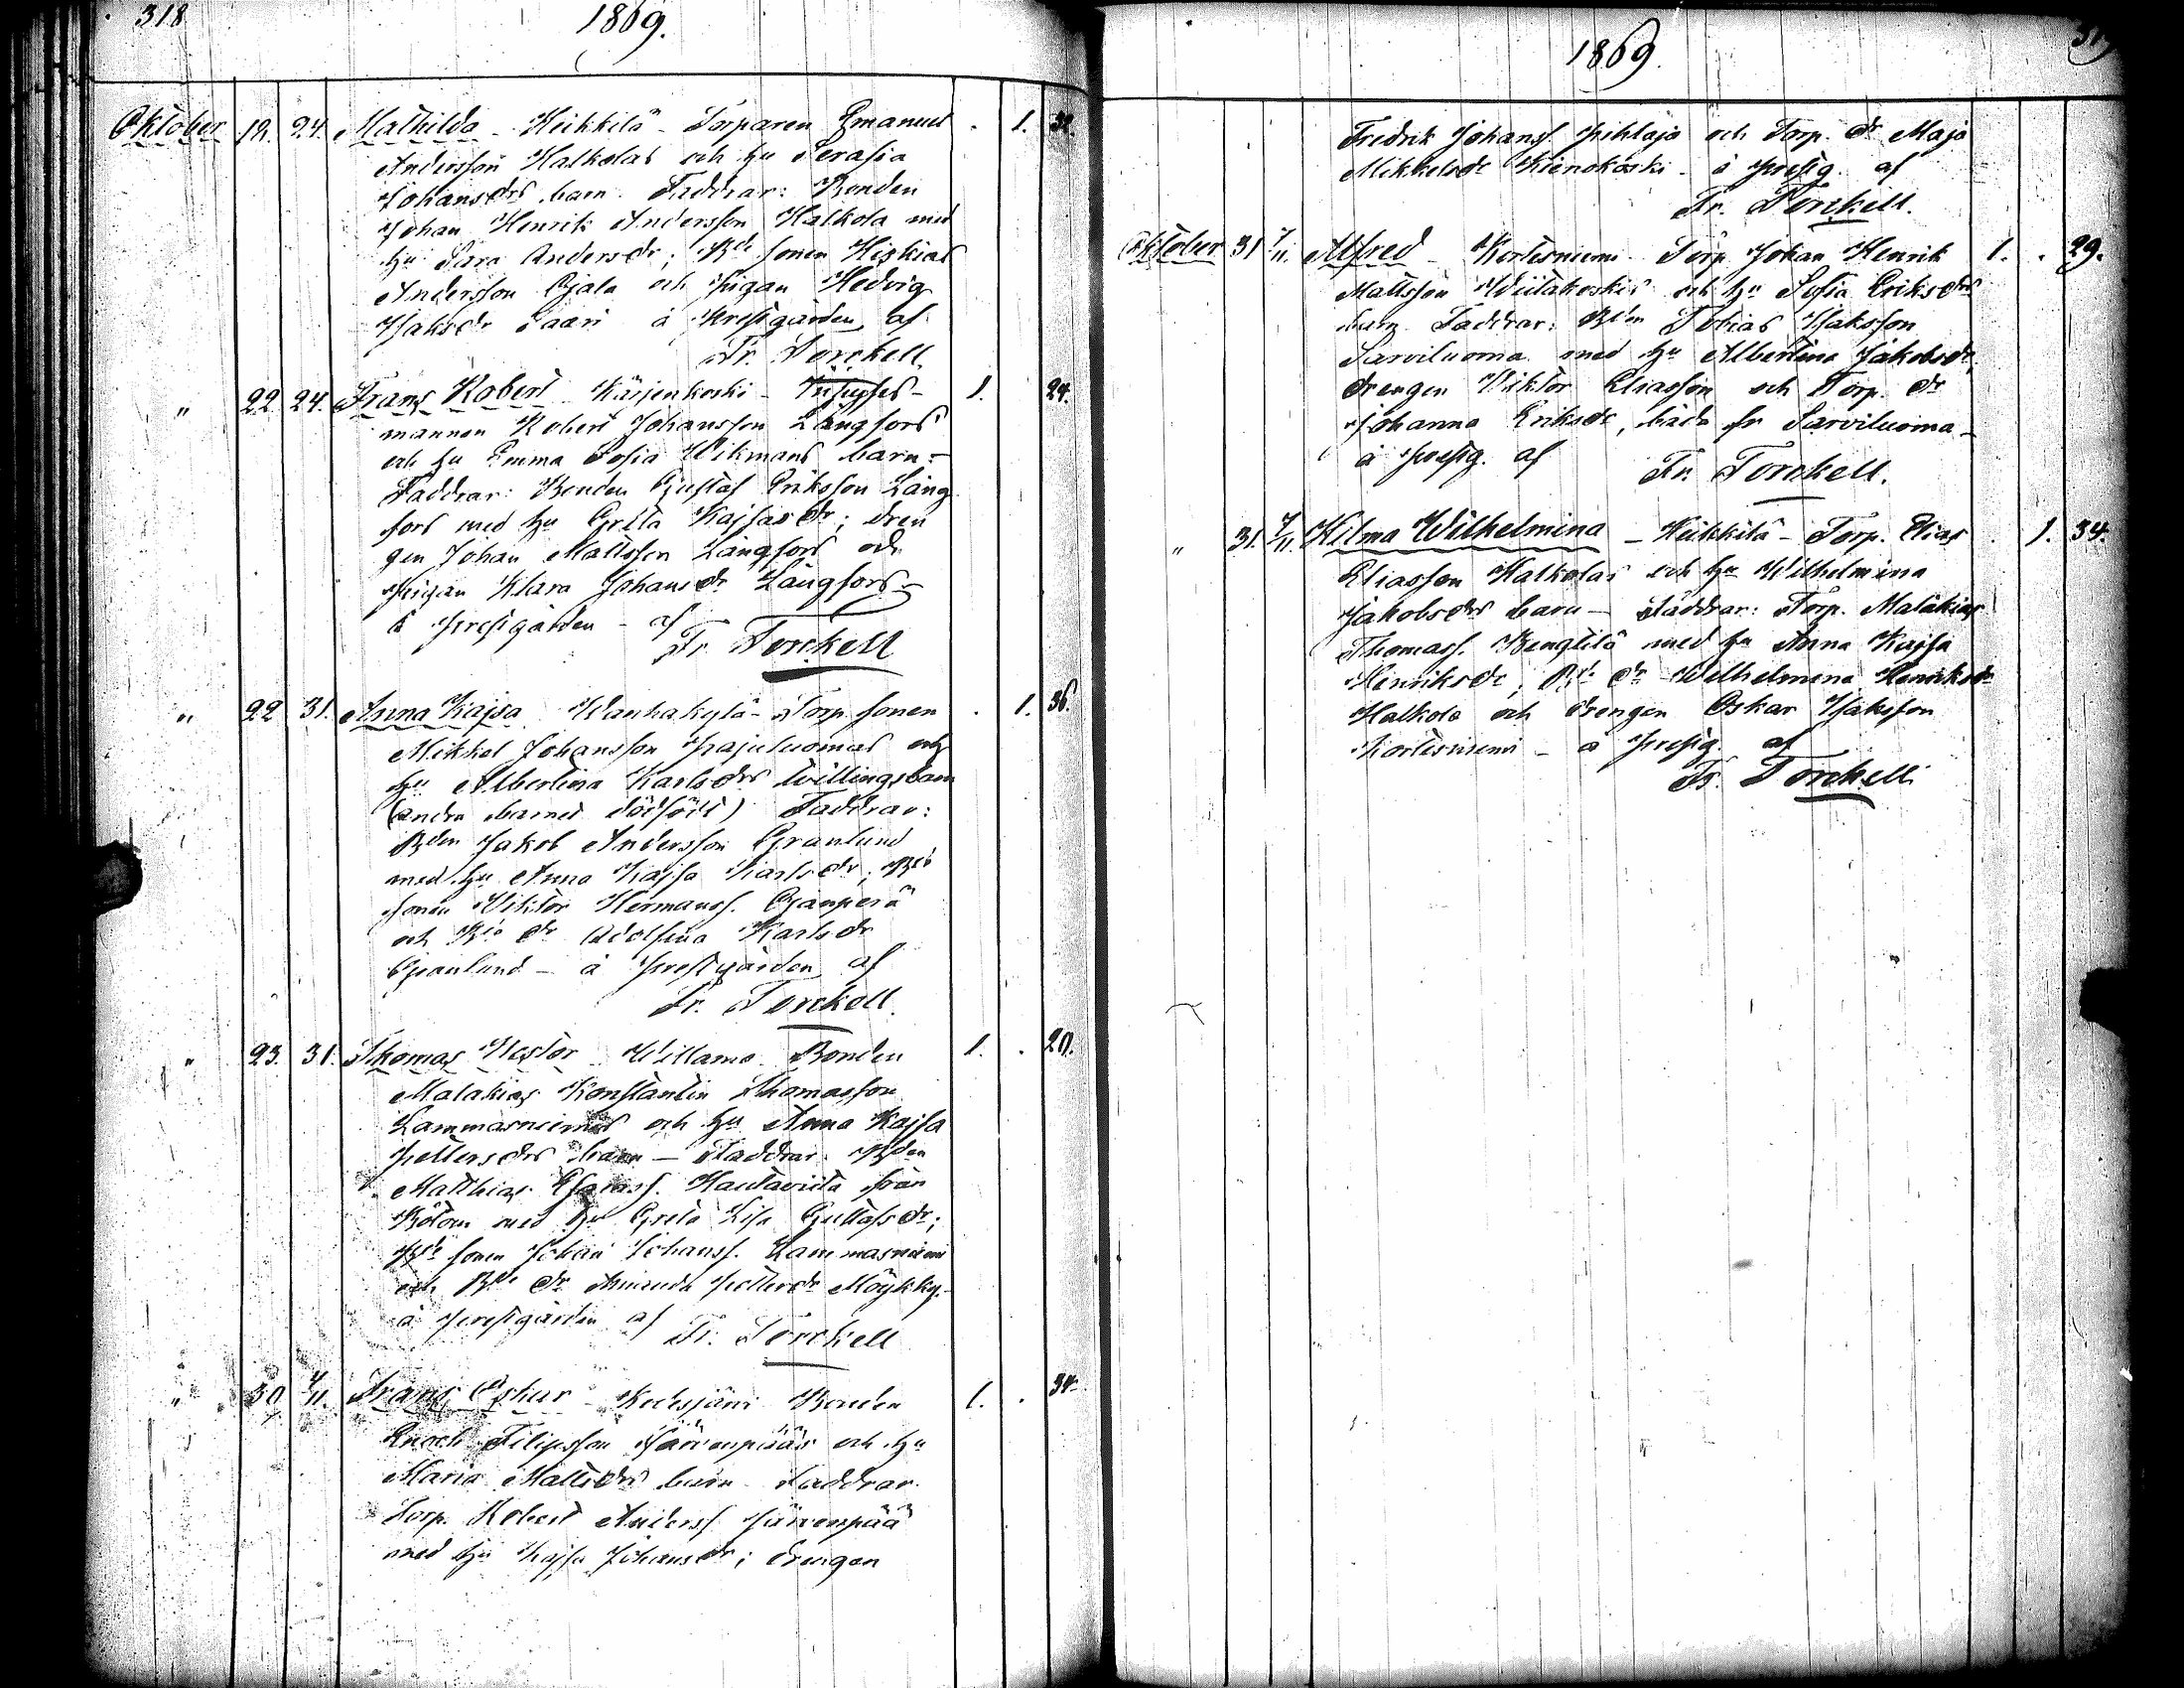 318
1869.
Oktober 19. 24. Mathilda - Heikkilä - Torparen Emanuel . 1. 32.
Andersson Halkolas och hu Serafia
Johansdrs barn. Faddrar: Bonden
Johan Henrik Andersson Halkola med
hu Sara Andersdr; Bde sonen Hiskias
Andersson Ojala och pigan Hedvig
Isaksdr Saari å Prestgården af
Fr. Torckell.
" 22. 24. Frans Robert - Kärjenkoski - 1. 24.
mannen Robert Johansson Långfors
och hu Emma Sofia Wikmans barn -
Faddrar: Bonden Gustaf Eriksson Lång
fors med hu Greta Kajsasdr; dren
gen Johan Mattsson Långfors och
pigan Klara Johansdr Långfors -
å prestgården - af
Fr. Torckell
" 22 31. Anna Kajsa Wanhakylä - Torp. sonen . 1. 36.
Mikkel Johansson Pajuluomas och
hu Albertina Karlsdrs tvillingsbarn
(andra barnet dödfödt) Faddrar:
Bden Jakob Andersson Granlund
med hu Anna Kajsa Karlsdr; Bde
sonen Viktor Hermanss. Ojanperä
och Bde dr Adolfina Karlsdr
Granlund - å prestgården af
Fr. Torckell.
" 23. 31. Thomas Nestor - Willamo Bonden 1. . 20.
Malakias Konstantin Thomasson
Lammasniemis och hu Anna Kajsa
Pettersdrs barn - Faddrar. Bden
Matthias Esaiass. Hautaviita från
Bötom med hu Greta Lisa Gustafsdr;
Bde sonen Johan Johanss. Lammasniemi
och Bde dr Amanda Pettersdr Möykky.
å prestgården af
Fr. Torckell
" 30 7/11. Frans Oskar - Kodesjärvi Bonden 1. . 34.
Enoch Filipsson Järvenpääs och hu
Maria Mattsdrs barn. Faddrar
Torp. Robert Anderss. Järvenpää
med hu Kajsa Johansdr; drengen
319
1869.
Fredrik Johanss. Pihlaja och Torp. dr Maja
Mikkelsdr Kienokoski - å prestg. af
Fr. Torckell.
Oktober 31 7/11. Alfred - Kortesniemi - Torp. Johan Henrik 1. . 29.
Mattsson Wiitakoskis och hu Sofia Eriksdrs
barn. Faddrar: Bden Tobias Isaksson
Sarviluoma med hu Albertina Jakobsdr,
drengen Viktor Eliasson och Torp. dr
Johanna Eriksdr, båda fr Sarviluoma -
å prestg. af
Fr. Torckell.
" 31. 7/11. Hilma Wilhelmina - Heikkilä - Torp. Elias . 1. 34.
Eliasson Halkolas och hu Wilhelmina
Jakobsdrs barn - Faddrar: Torp. Malakias
Thomass. Bengtilä med hu Anna Kajsa
Henriksdr; Bde dr Wilhelmina Henriksdr
Halkola och drengen Oskar Isaksson
Kortesniemi - å prestg. af
Fr. Torckell